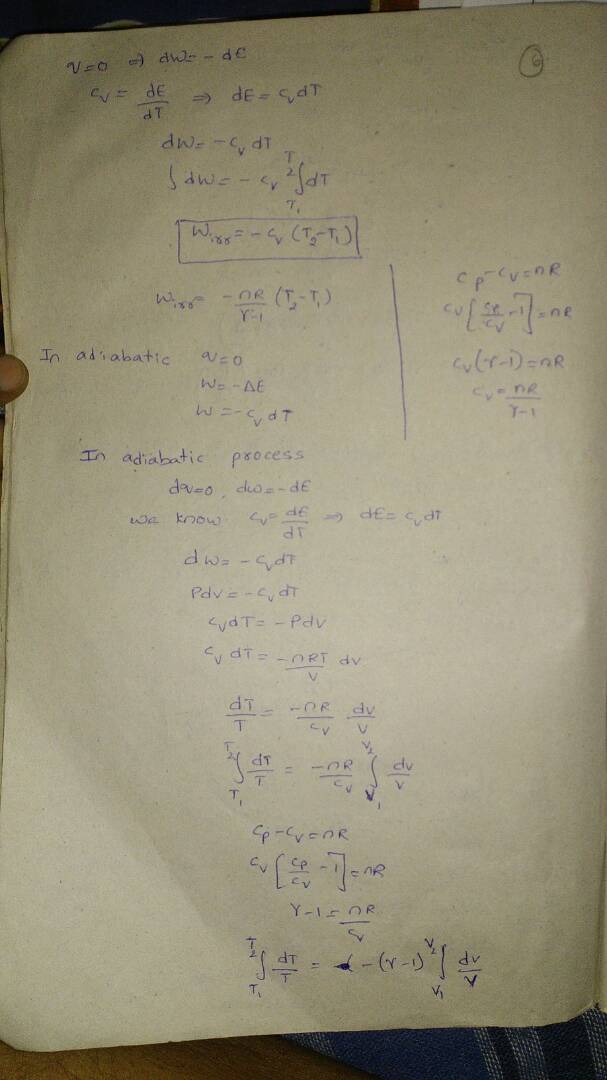 6
q=0 ⇒ dW=-dE
Cv = dE/dT ⇒ dE = CvdT
dW=-Cv dT
∫dW=-Cv T1∫T2 dT
Wirr=-Cv (T2-T1)
Wirr= -nR/γ-1 (T2-T1)
Cp-Cv=nR
Cv[Cp/Cv -1]=nR
Cv(γ-1)=nR
Cv=nR/γ-1
In adiabatic q=0
W=-ΔE
W=-Cv dT
In adiabatic process
dq=0, dw=-dE
we know Cv=dE/dT ⇒ dE=CvdT
dW=-CvdT
Pdv=-CvdT
CvdT=-Pdv
Cv dT=-nRT/V dv
dT/T = -nR/Cv dv/V
T1∫T2 dT/T = -nR/Cv V1∫V2 dv/V
Cp-Cv=nR
Cv[Cp/Cv -1]=nR
γ-1=nR/Cv
T1∫T2 dT/T = -(γ-1) V1∫V2 dv/V